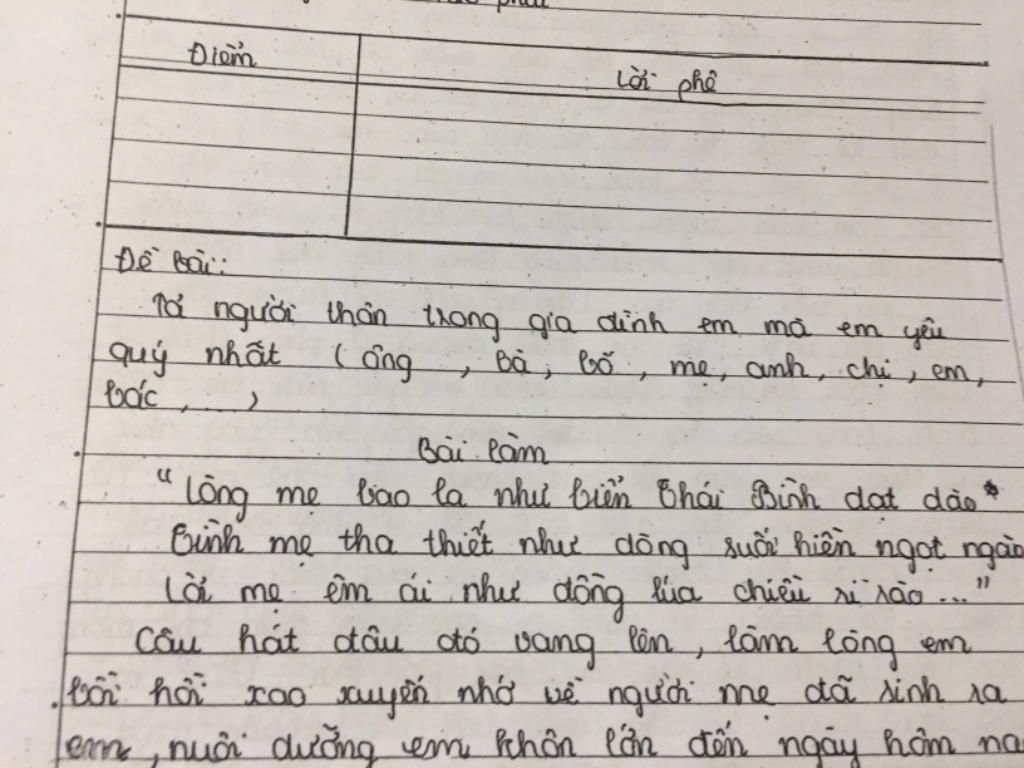 Điểm
Lời phê
Đề bài:
Tả người thân trong gia đình em mà em yêu
quý nhất ( ông , bà , bố , mẹ, anh, chị, em,
bác , ...,
Bài làm
“ Lòng mẹ bao la như biển Thái Bình dạt dào
Tình mẹ tha thiết như dòng suối hiền ngọt ngào
Lời mẹ êm ái như đồng lúa chiều rì rào ... ”
Câu hát đâu đó vang lên, làm lòng em
bồi hồi xao xuyến nhớ về người mẹ đã sinh ra
em, nuôi dưỡng em khôn lớn đến ngày hôm